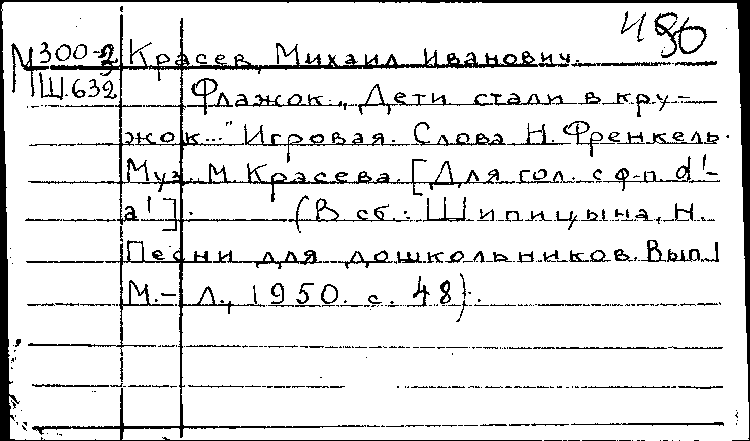 480
N 300-3 Красев, Михаил Иванович.
Ш.632 Флажок. „Дети стали в кру-
жок..." Игровая. Слова Н. Френкель.
Муз. М. Красева. [Для гол. с ф-п. d¹-
a¹]. (В сб.: Шипицына, Н.
Песни для дошкольников. Вып.1
М.-Л., 1950. с. 48).